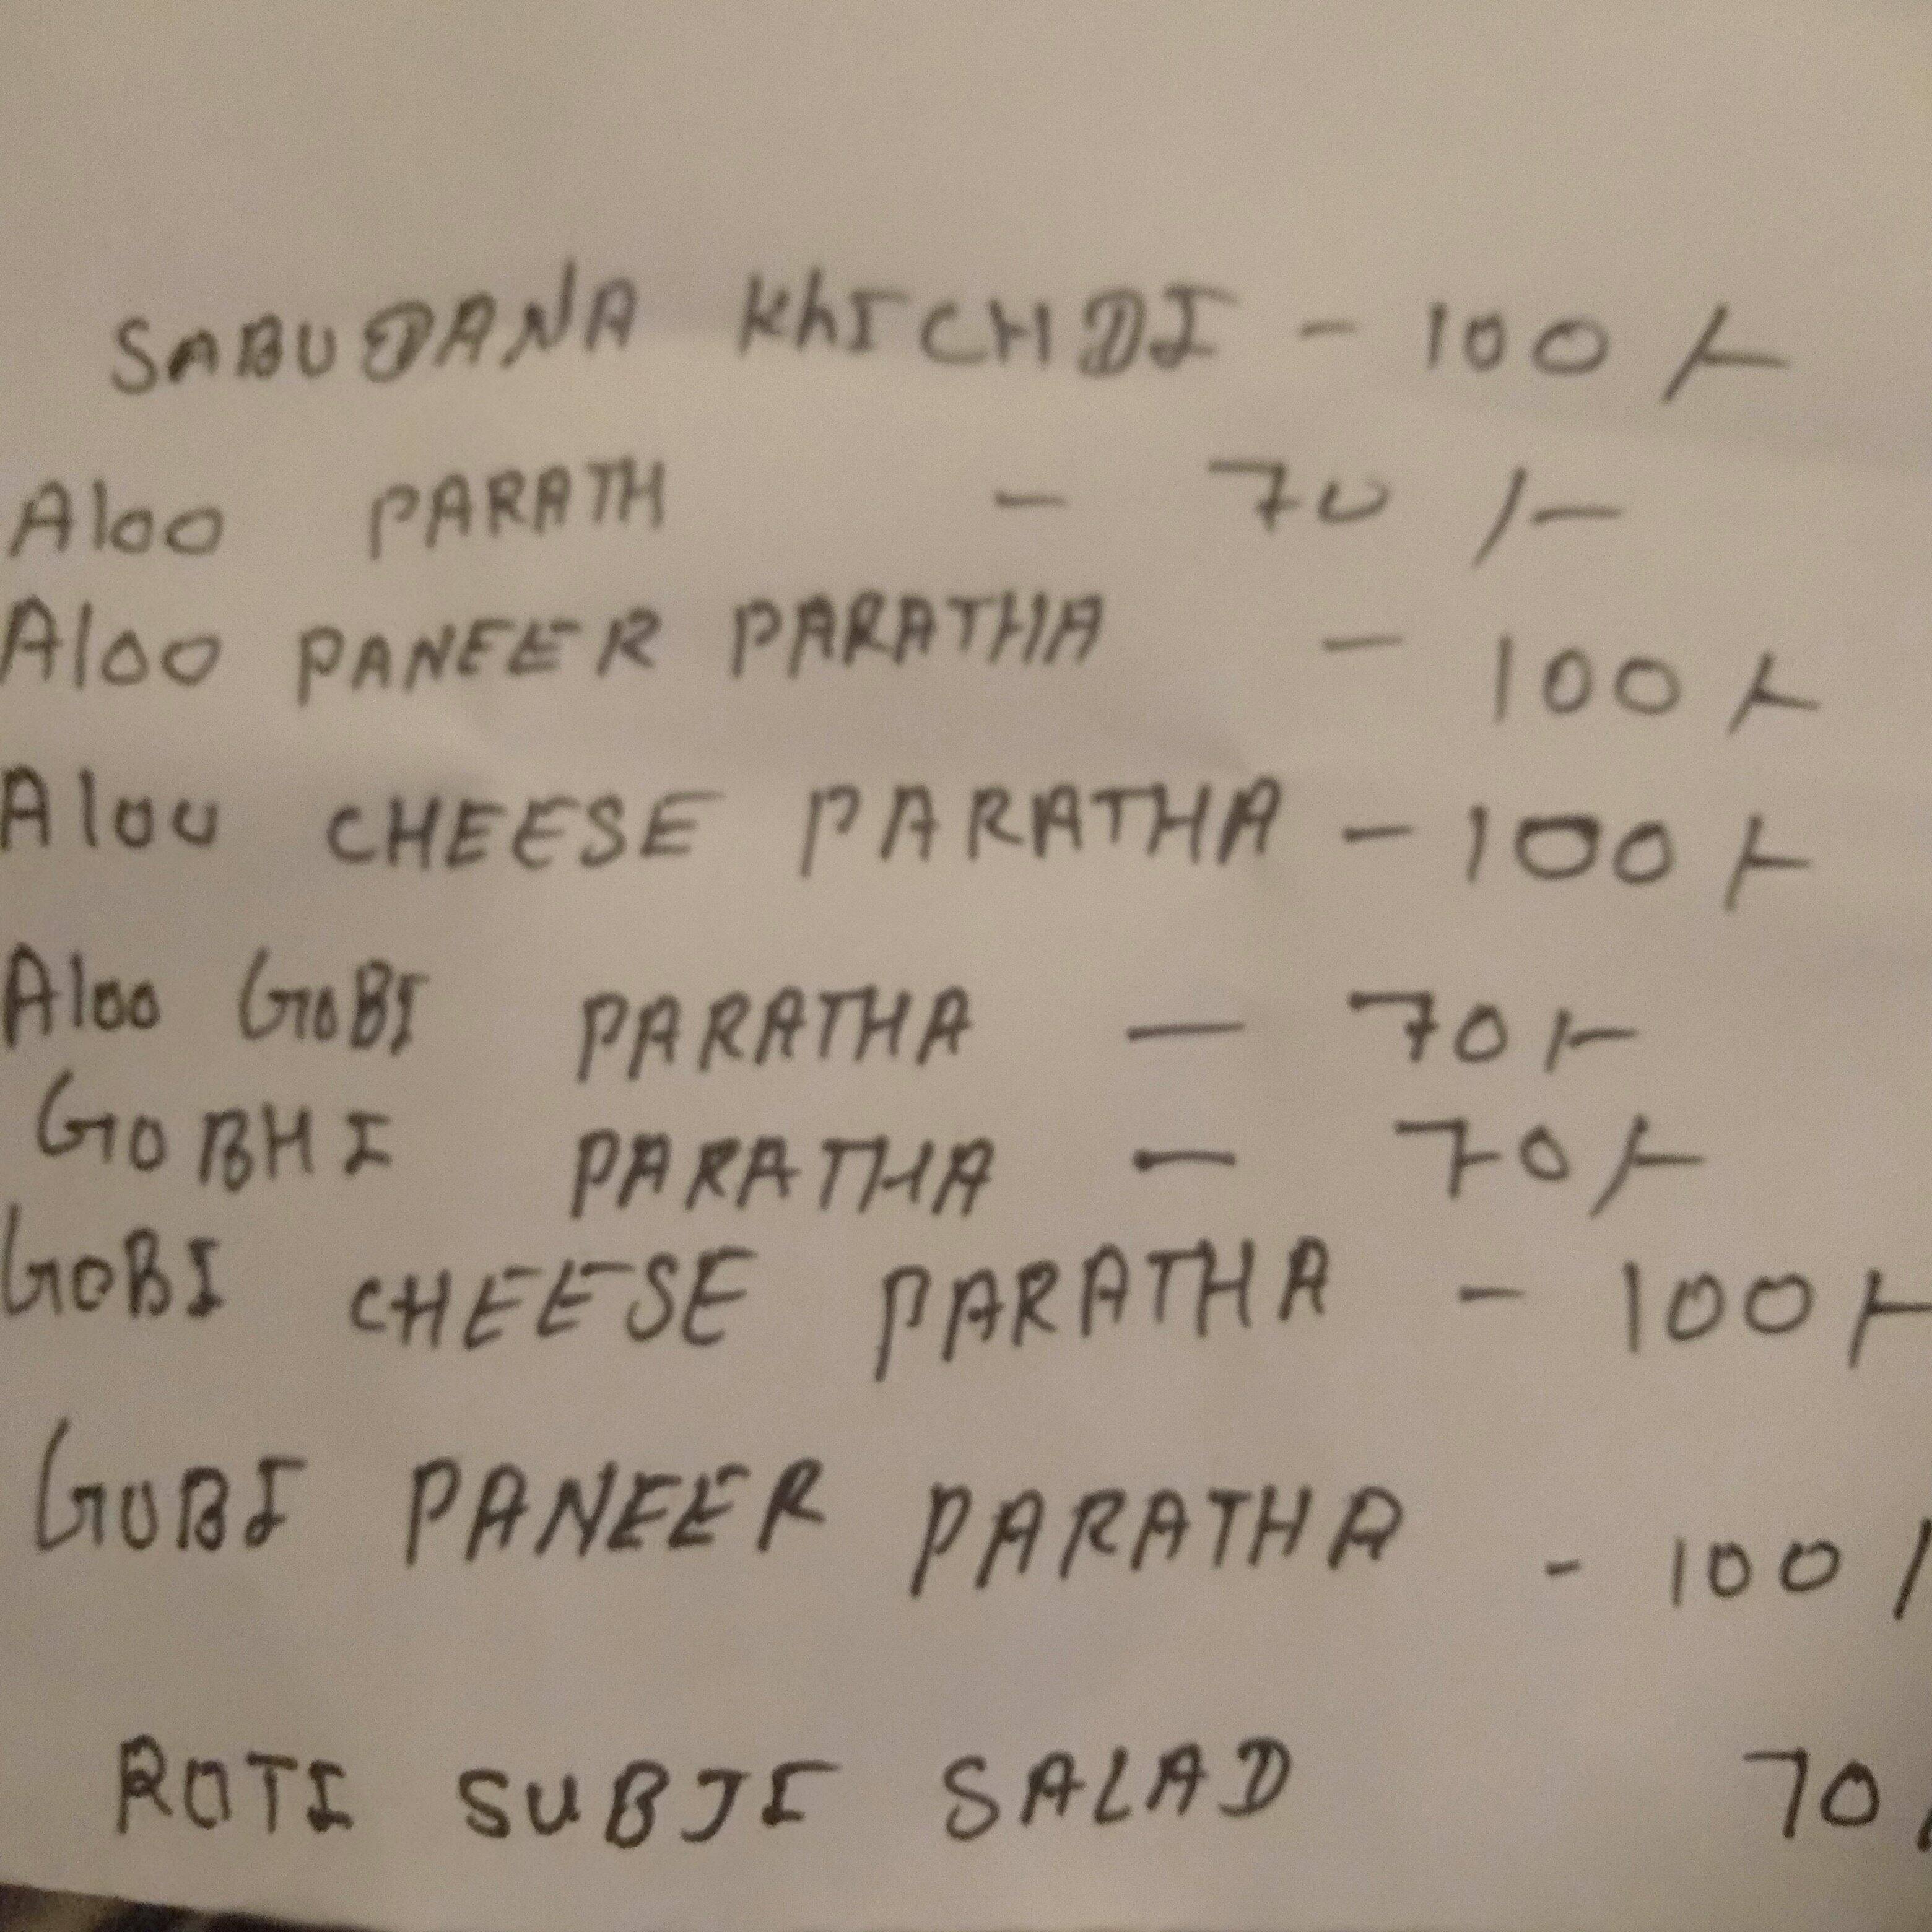 SABUDANA KhICHDI - 100 /-
Aloo PARATH - 70 /-
Aloo PANEER PARATHA - 100 /-
Aloo CHEESE PARATHA - 100 /-
Aloo GOBI PARATHA - 70 /-
GOBHI PARATHA - 70 /-
GOBI CHEESE PARATHA - 100 /-
GOBI PANEER PARATHA - 100 /
ROTI SUBJI SALAD 70 /